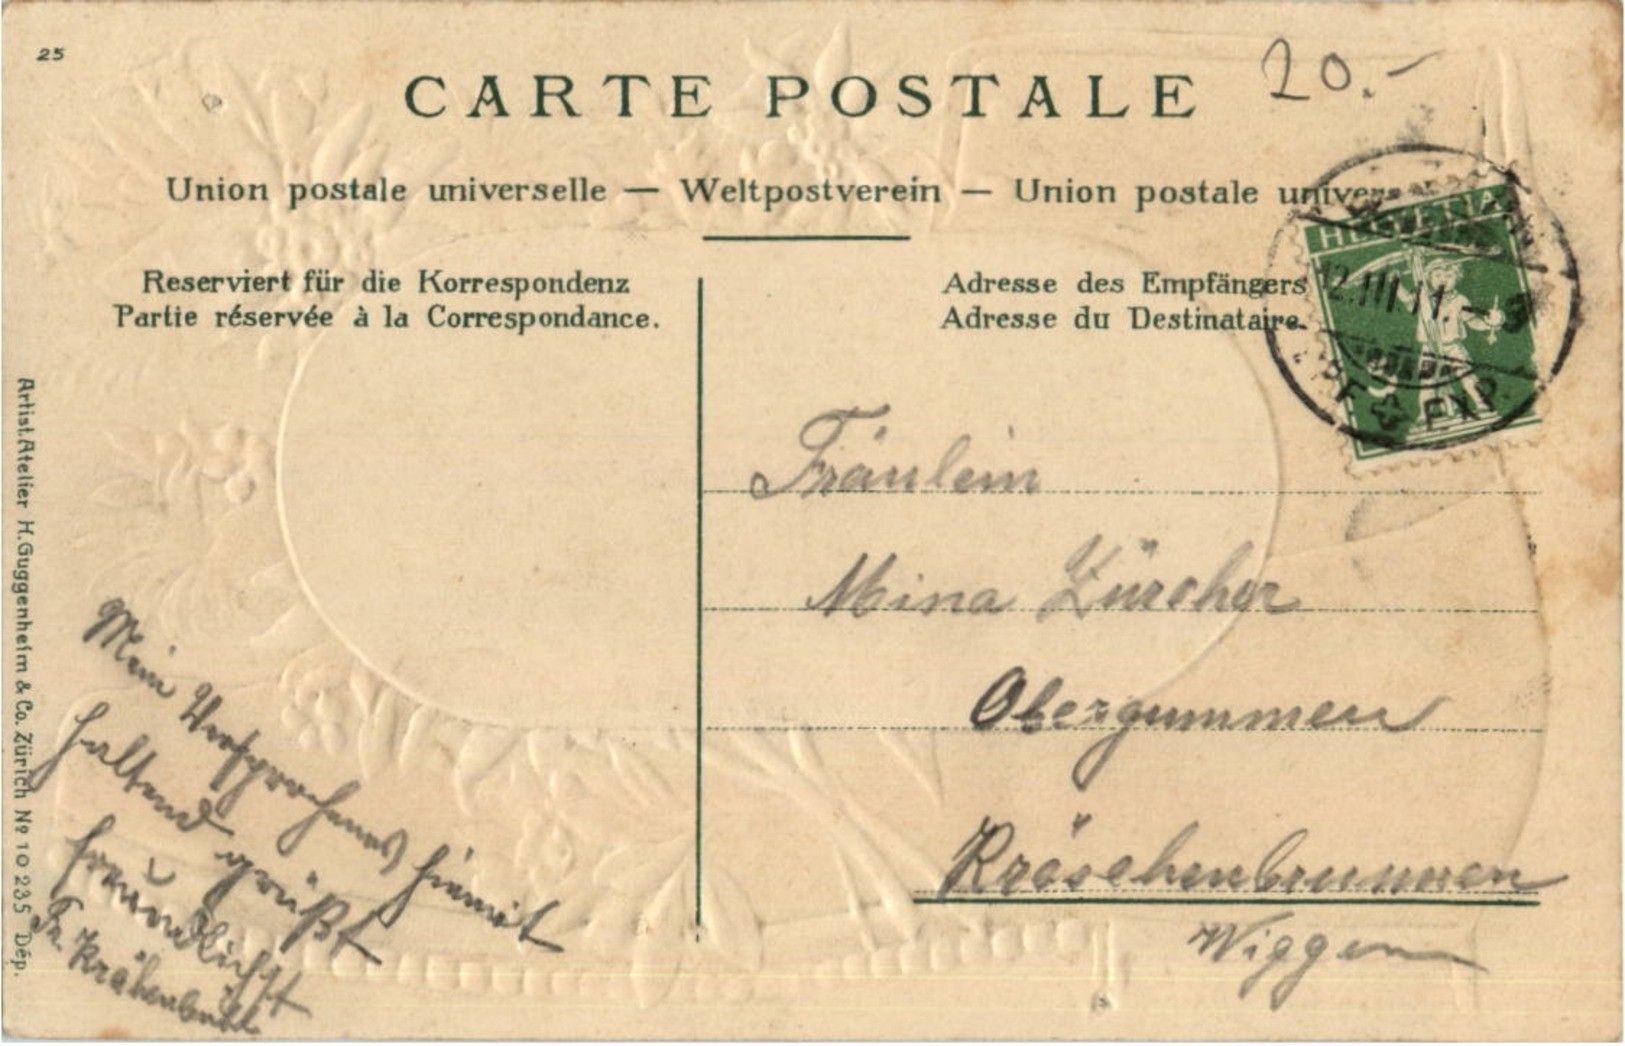 25
CARTE POSTALE
20.-
Union postale universelle — Weltpostverein — Union postale univers
Reserviert für die Korrespondenz
Partie réservée à la Correspondance.
Adresse des Empfängers
Adresse du Destinataire.
HELVETIA
12.III.11.-9
EXP.
Fräulein
Mina Zürcher
Obergummen
Kröschenbrunnen
Wiggen
Mein Versprochenes hiemit
haltend grüßt
freundlichst
Fr. Krähenbühl
Artist. Atelier H. Guggenheim & Co. Zürich Nº 10235 Dép.